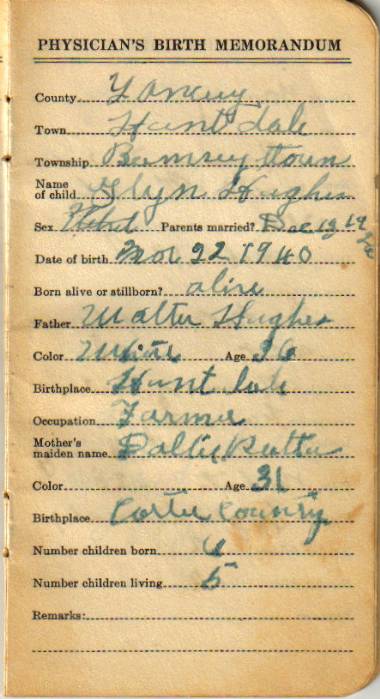 PHYSICIAN'S BIRTH MEMORANDUM
County Yancey
Town Huntdale
Township Ramseytown
Name
of child Glyn Hughes
Sex Parents married? Dec 13 19
Date of birth Mar 22 1940
Born alive or stillborn? alive
Father Walter Hughes
Color White Age 36
Birthplace Huntdale
Occupation Farmer
Mother's
maiden name Dollie
Color Age 31
Birthplace Carter County
Number children born
Number children living 5
Remarks: